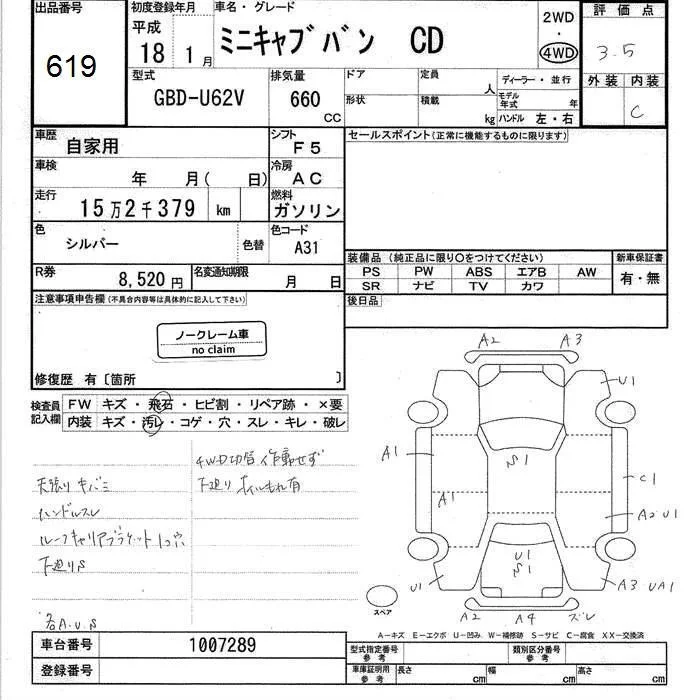 出品番号
619
初度登録年月
平成
18 1月
車名・グレード
ミニキャブ バン CD
2WD
・
4WD
評価点
3.5
外装 内装
C
型式
GBD-U62V
排気量
660
CC
ドア
定員
人
形状
積載
kg
ディーラー・並行
モデル
年式
年
ハンドル 左・右
車歴
自家用
シフト
F5
車検
年 月( 日)
冷房
AC
走行
15万2千379 km
燃料
ガソリン
色
シルバー
色替
色コード
A31
R券
8,520円
名変通知期限
月 日
セールスポイント(正常に機能するものに限ります)
装備品(純正品に限り〇をつけてください)
PS PW ABS エアB AW
SR ナビ TV カワ
新車保証書
有・無
後日品
注意事項申告欄(不具合内容等は具体的に記入して下さい)
ノークレーム車
no claim
修復歴 有〔箇所 〕
検査員
記入欄
FW キズ・飛石・ヒビ割・リペア跡・×要
内装 キズ・汚レ・コゲ・穴・スレ・キレ・破レ
4WD切替 作動せず
下廻り オイルもれ有
天張り キバミ
ハンドルスレ
ルーフキャリアブラケット 1コ穴
下廻りS
各A.U.S
A2 A3
U1
A1
S1
C1
A1
A2 U1
U1
S1
U1
A3 UA1
A2 A4 ズレ
スペア
A-キズ E-エクボ U-凹み W-補修跡 S-サビ C-腐食 XX-交換済
車台番号
1007289
登録番号
型式指定番号
参考
類別区分番号
参考
車庫証明用
参考
長さ
cm
幅
cm
高さ
cm